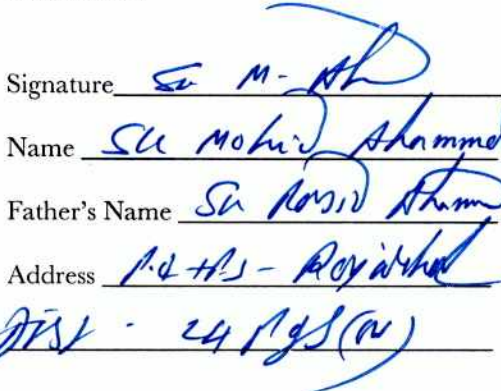 Signature Sk M-
Name Sk Mohid Ahammed
Father's Name Sk Ahamm
Address P.O + P.S -
Dist - 24 Pgs (N)